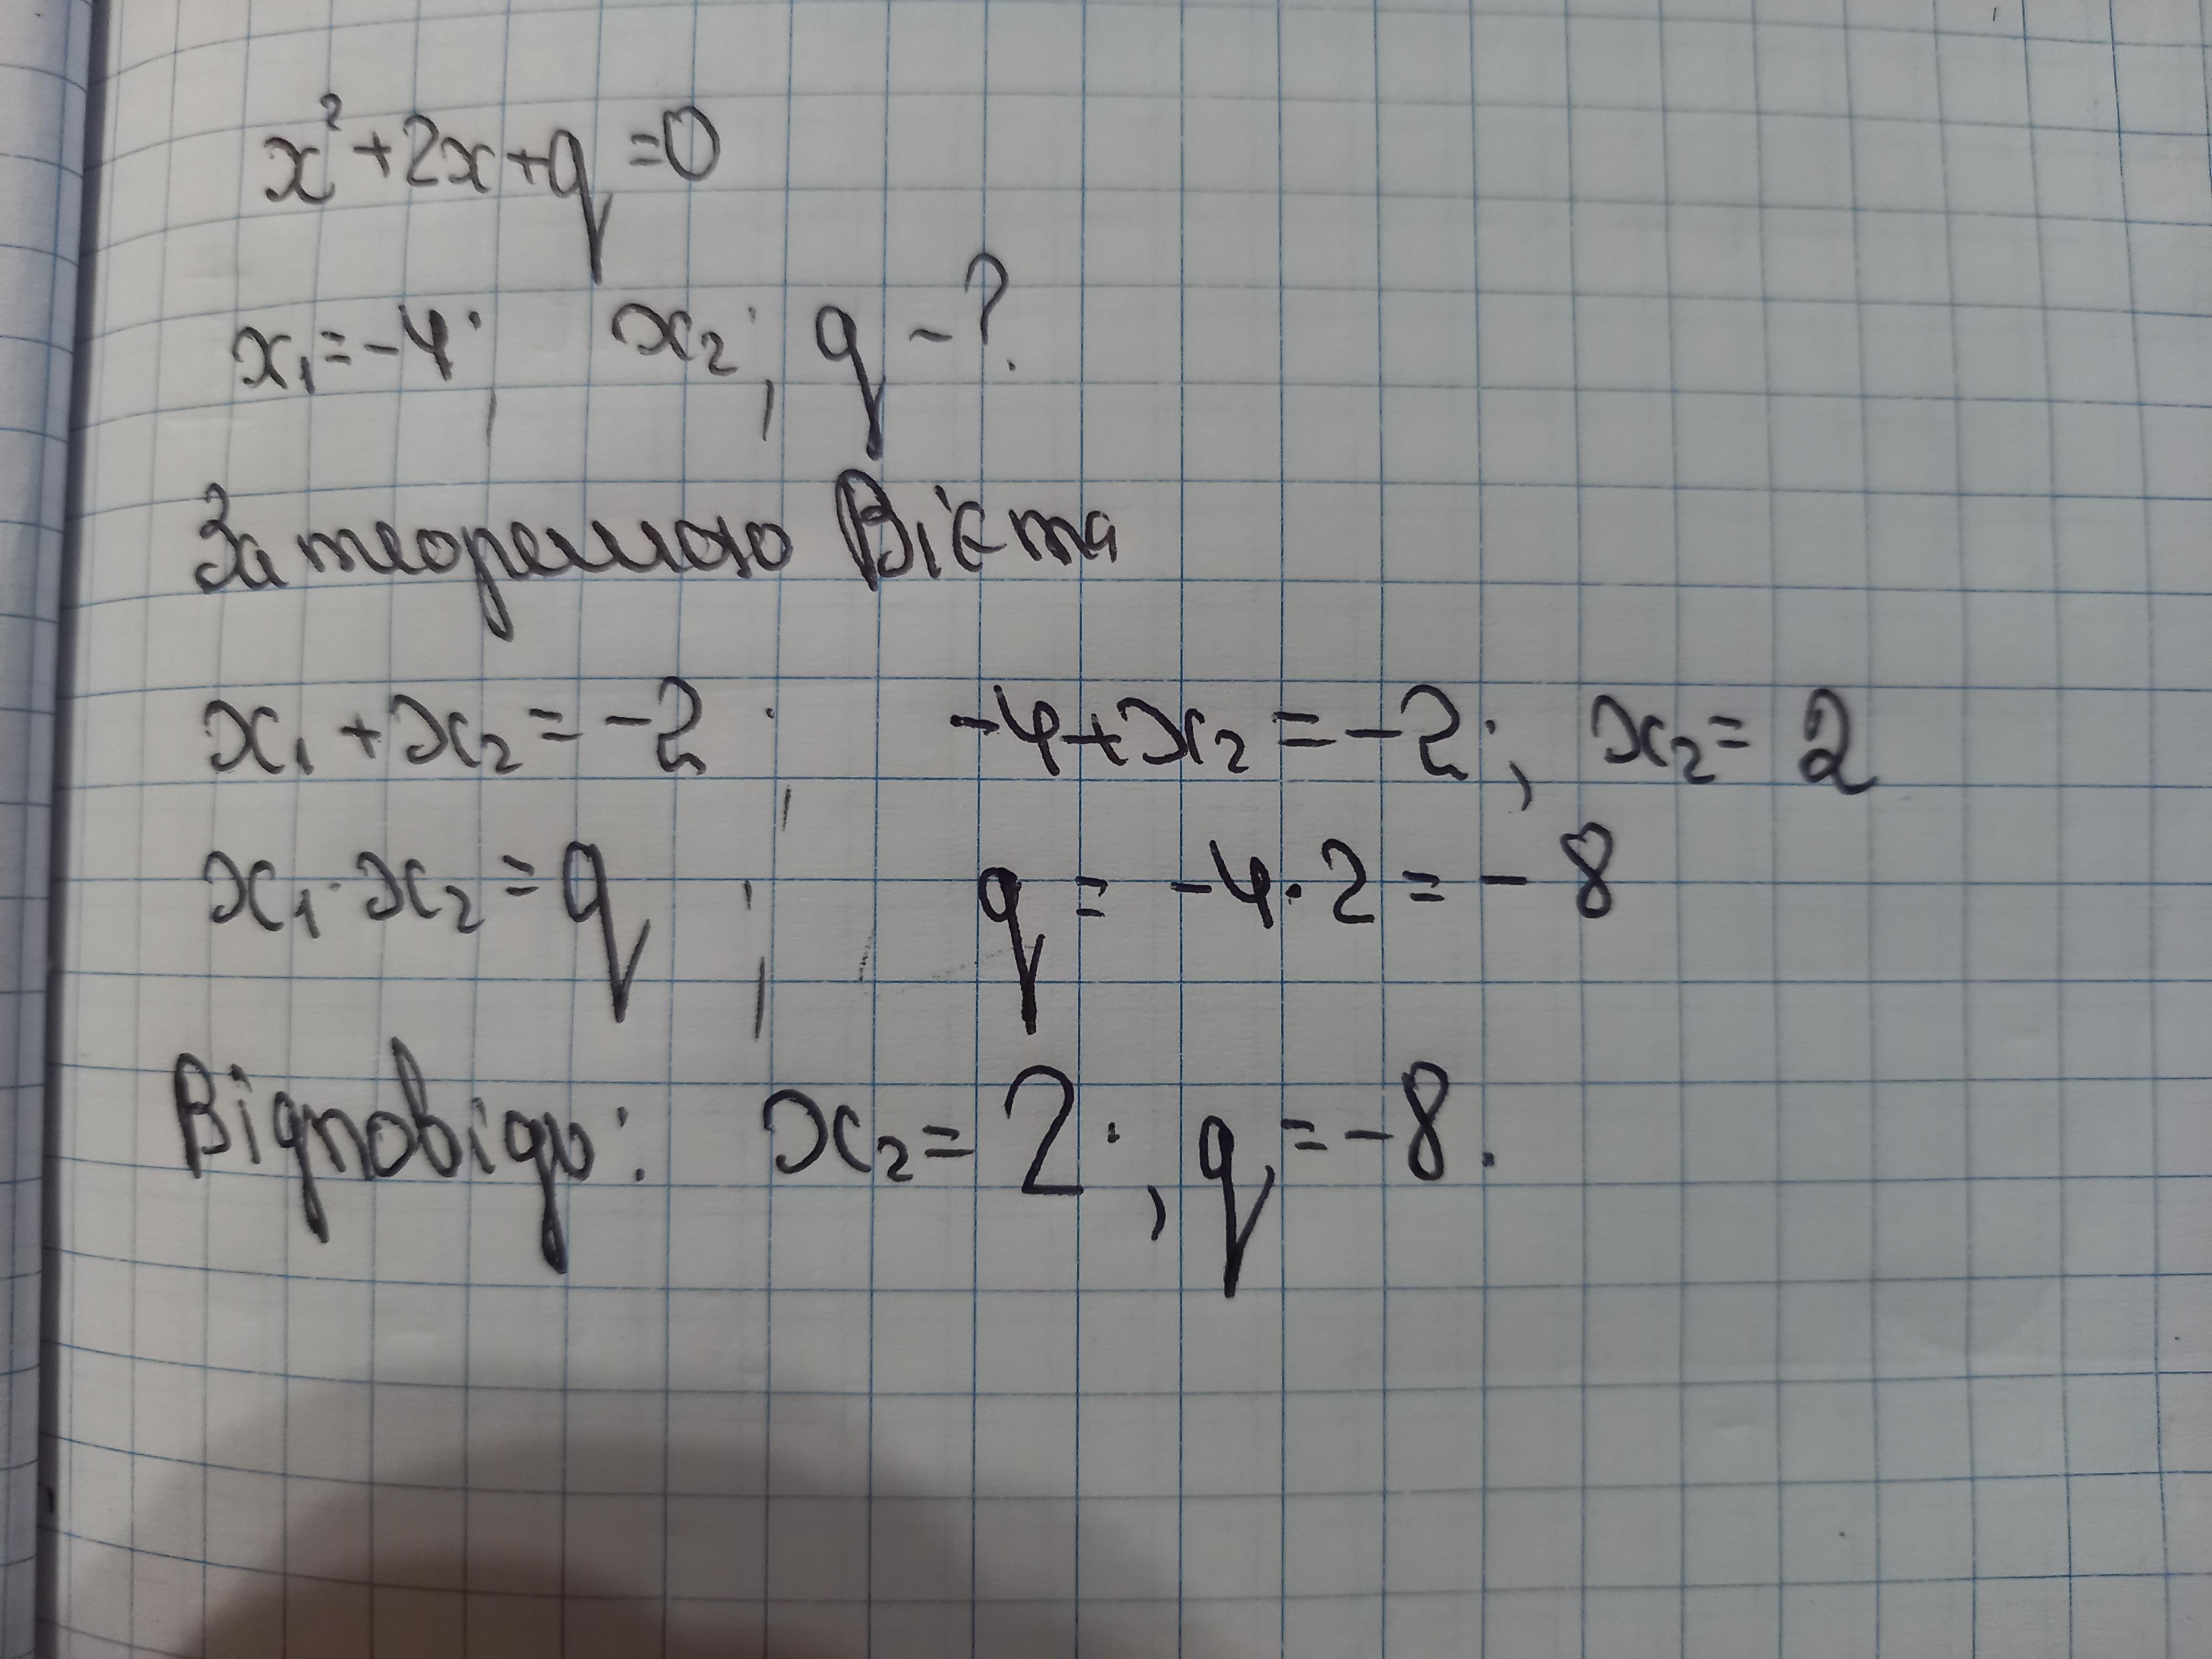 x² + 2x + q = 0
x₁ = -4; x₂; q - ?
За теоремою Вієта
x₁ + x₂ = -2; -4 + x₂ = -2; x₂ = 2
x₁ · x₂ = q; q = -4 · 2 = -8
Відповідь: x₂ = 2; q = -8.